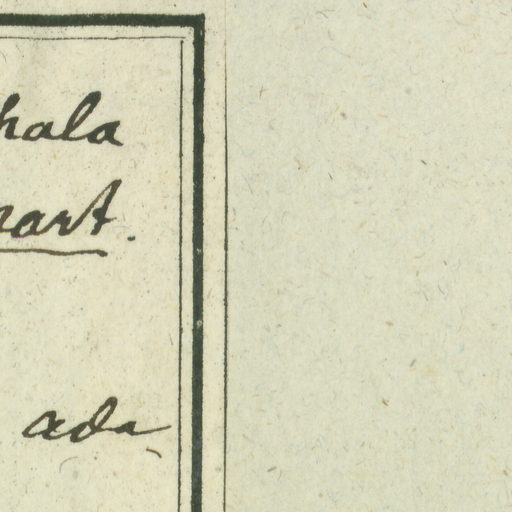 hala
art.
ada